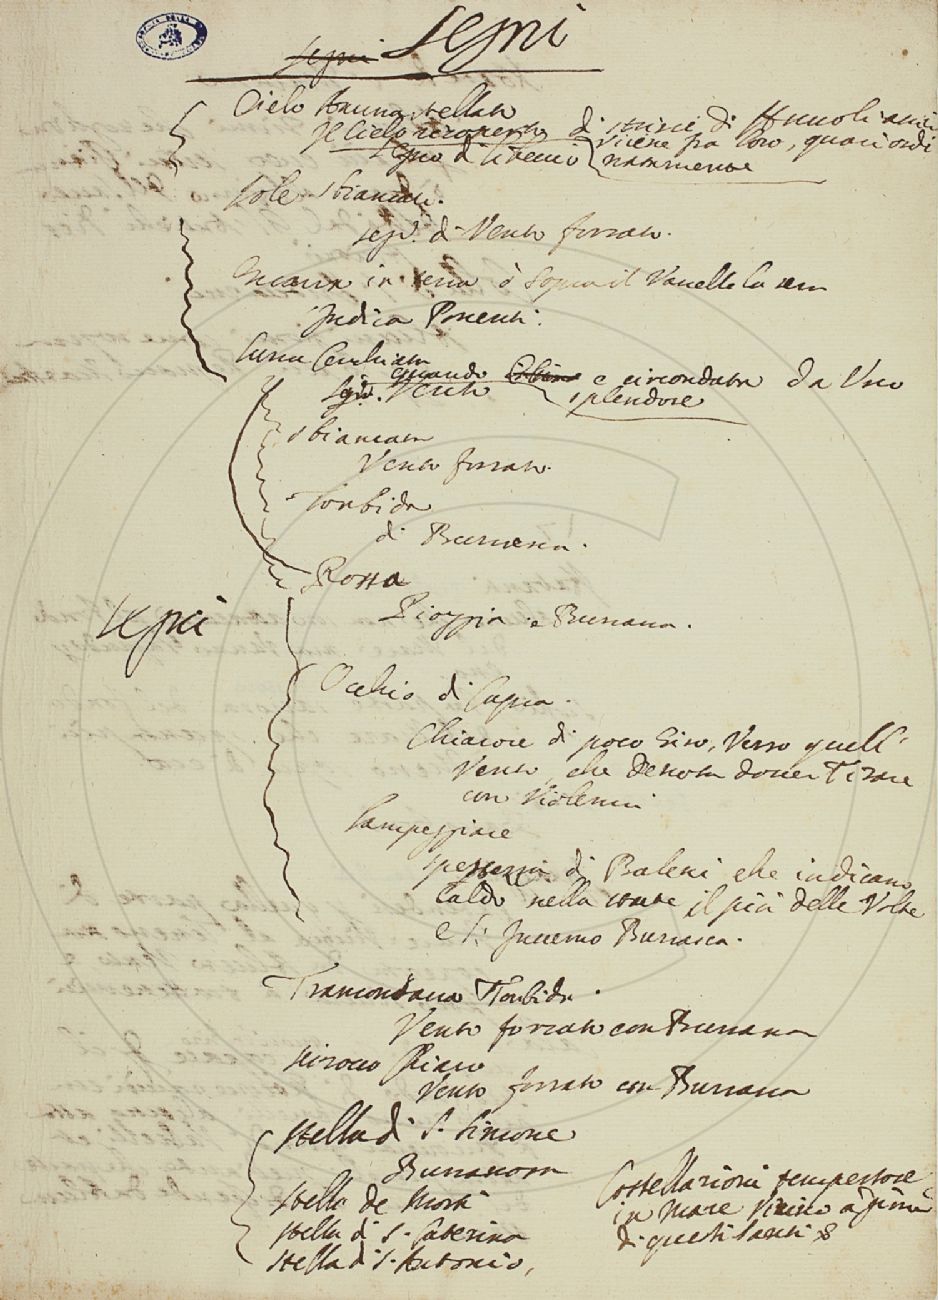 Segni Segni
Cielo stellato
Il Cielo ricoperto di strisie di Nuvoli
vicine fra loro, quasi ordi
segno di Libeccio nariamente
Sole sbiancato.
segn. di Vento forzato.
in terra ò sopra il
Indica Ponenti.
Luna Cerchiata
quando è circondata da Uno
segn. Vento splendore
Sbiancata
Vento forzato.
Torbida
di Burrasca.
Rossa
Pioggia e Burrasca.
Segni
Occhio di Capra.
Chiarore di poco Giro, Verso quell'
Vento, che denota dover Tirare
con Violenza
Lampeggiare
spessezza di Baleni che indicano
Caldo nella state il più delle Volte
e l' Inverno Burrasca.
Tramontana Torbida.
Vento forzato con Burrasca
Sirocco Chiaro
Vento forzato con Burrasca
Stella di S. Simone
Burrascosa
Stella de Morti
Stella di S. Caterina
Stella di S. Antonio,
Costellazioni tempestose
in Mare Vicino a
di questi Santi &